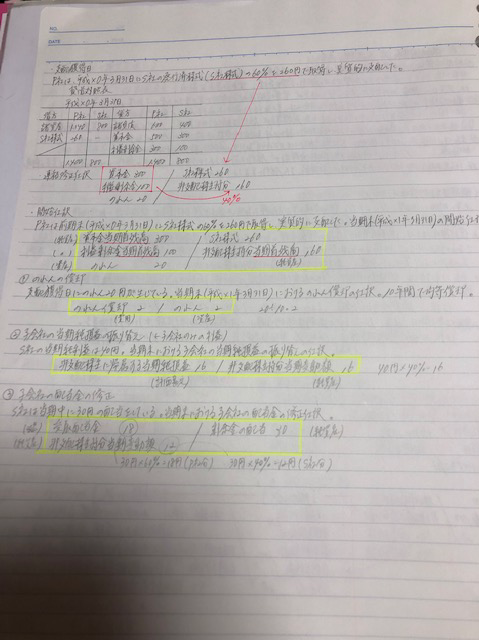 NO.
DATE
支配獲得日
P社は、平成×0年3月31日にS社の発行済株式(S社株式)の60%を260円で取得し実質的に支配した。
貸借対照表
平成×0年3月31日
借方 P社 S社 貸方 P社 S社
諸資産 800 諸負債 600 400
S社株式 260 - 資本金 500 300
利益剰余金 300 100
1,400 800 1,400 800
連結修正仕訳 資本金 300 / S社株式 260
利益剰余金 100 / 非支配株主持分 160
のれん 20 40%
・開始仕訳
P社は前期末(平成×0年3月31日)にS社の60%を260円で取得し、実質的に支配した。当期末(平成×1年3月31日)の開始仕訳
資本金当期首残高 300 / S社株式 260
利益剰余金当期首残高 100 / 非支配株主持分当期首残高 160
のれん 20
① のれんの償却
支配獲得日にのれん20円が生じている。当期末(平成×1年3月31日)におけるのれん償却の仕訳。10年間で均等償却。
のれん償却 2 / のれん 2 20÷10=2
(費用) (資産)
② 子会社の当期純損益の振り替え
S社の当期純利益は40円。当期末における子会社の当期純損益の振り替えの仕訳。
非支配株主に帰属する当期純損益 16 / 非支配株主持分当期変動額 16 40円×40%=16
③ 子会社の配当金の修正
S社は当期中に30円の配当をしている。当期末における子会社の配当金の修正仕訳。
受取配当金 18 / 剰余金の配当 30
非支配株主持分当期変動額 12
30円×60%=18円(P社分) 30円×40%=12円